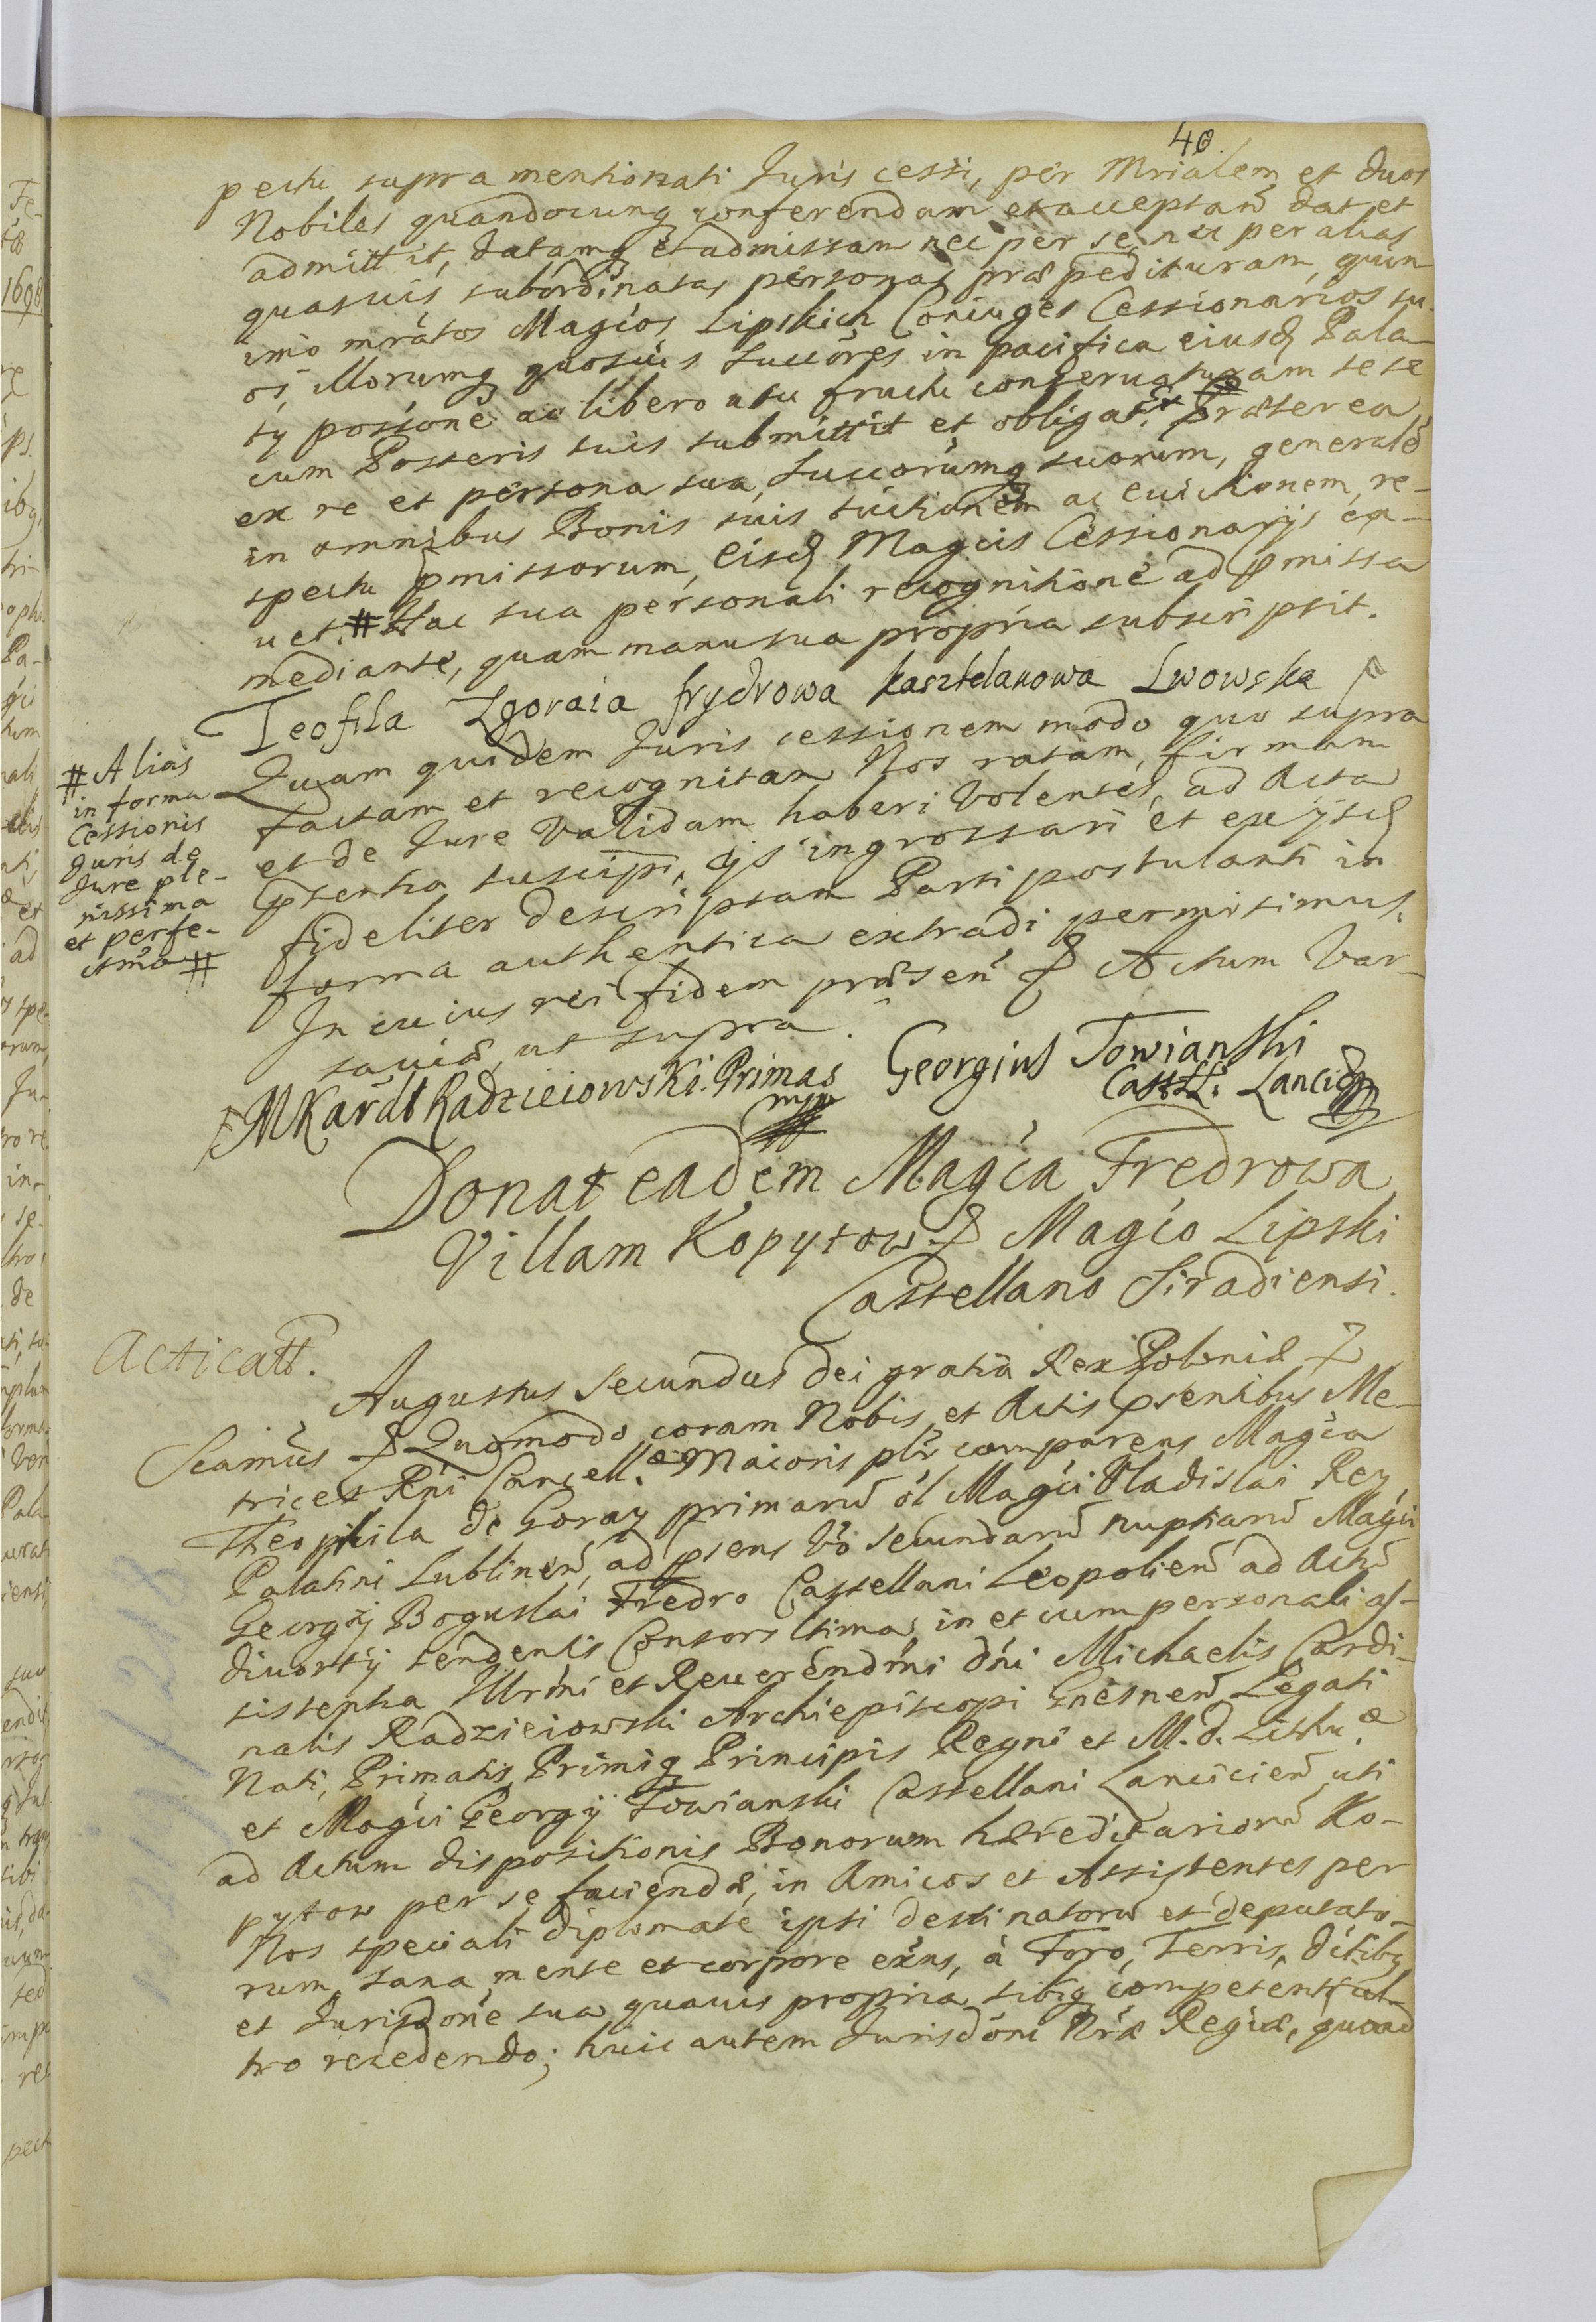 40.
pectu supra mentionati Juris cessi, per Mrialem et duos
Nobiles quandocunq conferendam et acceptan̄ dat et
admittit, datamq et admissam nec per se, nec per alias
quasuis subordinatas personas præpedituram, quin
imo mrãtos Magcos Lipskich Coniuges Cessionarios su-
os, illorumq quosuis Succõres in pacifica eiusd Pala-
tÿ possone ac libero usu fructu conseruaturam sese
cum Posteris suis submittit et obligat. Præterea
ex re et persona sua, Succorumq suorum, generale
in omnibus Bonis suis tuitionem ac euictionem, re-
spectu pmissorum, eisd Magcis Cessionarijs ca-
uet. # Hac sua personali recognitione ad pmissa
mediante, quam manu sua propria subscripsit.
Teofila Zgoraia frydrowa kasztelanowa Lwowska
# Alias
in forma
Cessionis
Juris de
Jure ple-
nissima
et perfe-
ctma #
Quam quidem Juris cessionem modo quo supra
factam et recognitam Nos ratam, firmam
et de Jure validam haberi volentes, ad Acta
psentia suscipi, ijs ingrossari et ex ijsd
fideliter descriptam Parti postulanti in
forma authentica extradi permisimus.
In cuius rei fidem præsen Actum Var-
sauiæ, ut supra.
MKardł Radzieiowski. Primas mp
Georgius Towianski
Castell: Lancic
Donat eadem Magca Fredrowa
Villam Kopytow Magco Lipski
Castellano Siradiensi.
Acticatt.
Augustus Secundus Dei gratia Rex Poloniæ
Scimus Quomodo coram Nobis et Actis psentibus Me-
trices Rni Cancell:æ Maioris plr comparens Magca
Theophila de Goray primarū ol Magci Vladislai Rey
Palatini Lublinen̄, ad psens vo secundarū nuptiarū Magci
Georgÿ Boguslai Fredro Castellani Leopolien̄ ad Actū
diuortÿ tendentis Consors ltima, in et cum personali as-
sistentia Illrmi et Reuerendmi dni Michaelis Cardi-
nalis Radzieiowski Archiepiscopi Gnesnen̄ Legati
Nati, Primatis Primiq Principis Regni et M. d. Lithu:æ
et Magci Georgÿ Towianski Castellani Lancicien̄ uti
ad Actum dispositionis Bonorum hæreditariorū Ko-
pytow per se faciendæ, in Amicos et Assistentes per
Nos speciali diplomate ipsi destinatorū et deputato-
rum, sana mente et corpore exns, à Foro, Terris, dictibq
et Jurisdone sua quauis propria sibiq competenti ul-
tro recedendo; huic autem Jurisdoni Nræ Regiæ, quoad